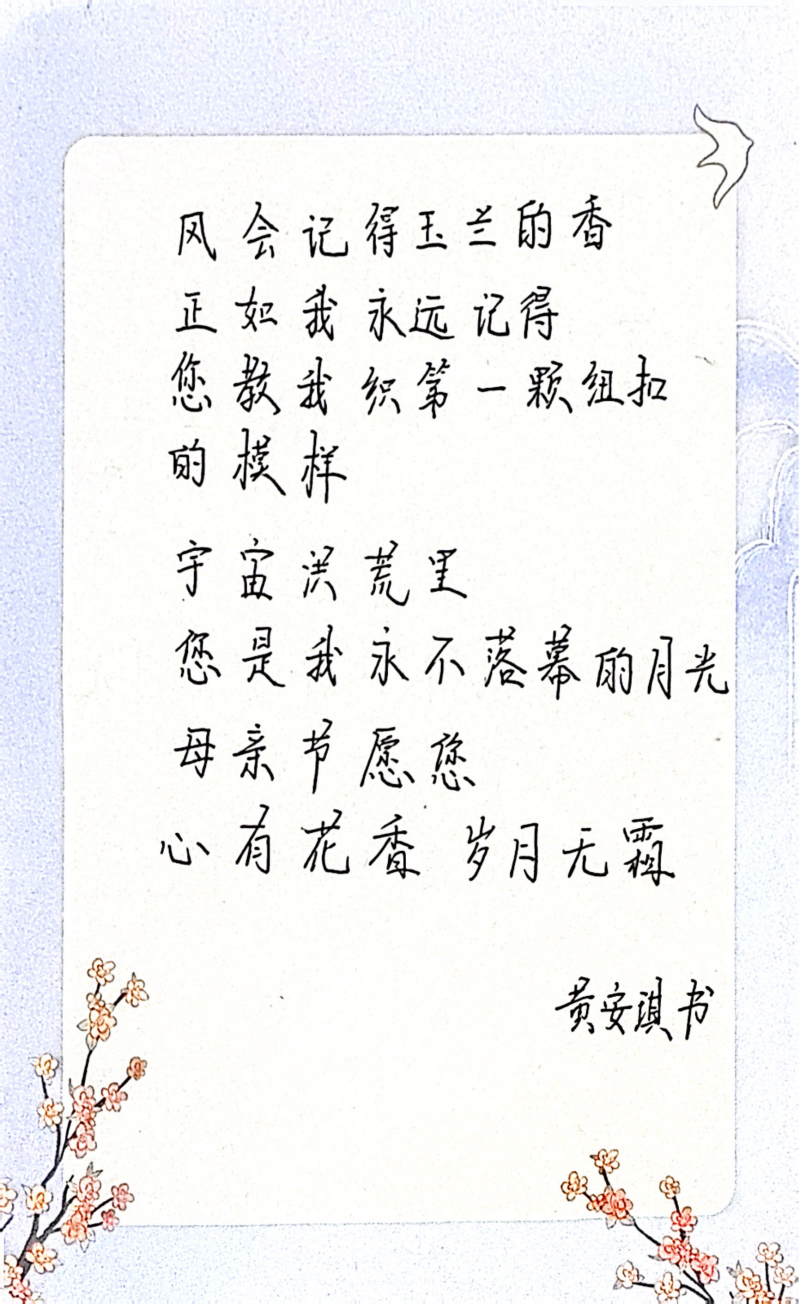 风会记得玉兰的香
正如我永远记得
您教我织第一颗纽扣
的模样
宇宙洪荒里
您是我永不落幕的月光
母亲节愿您
心有花香 岁月无霜
黄安淇书